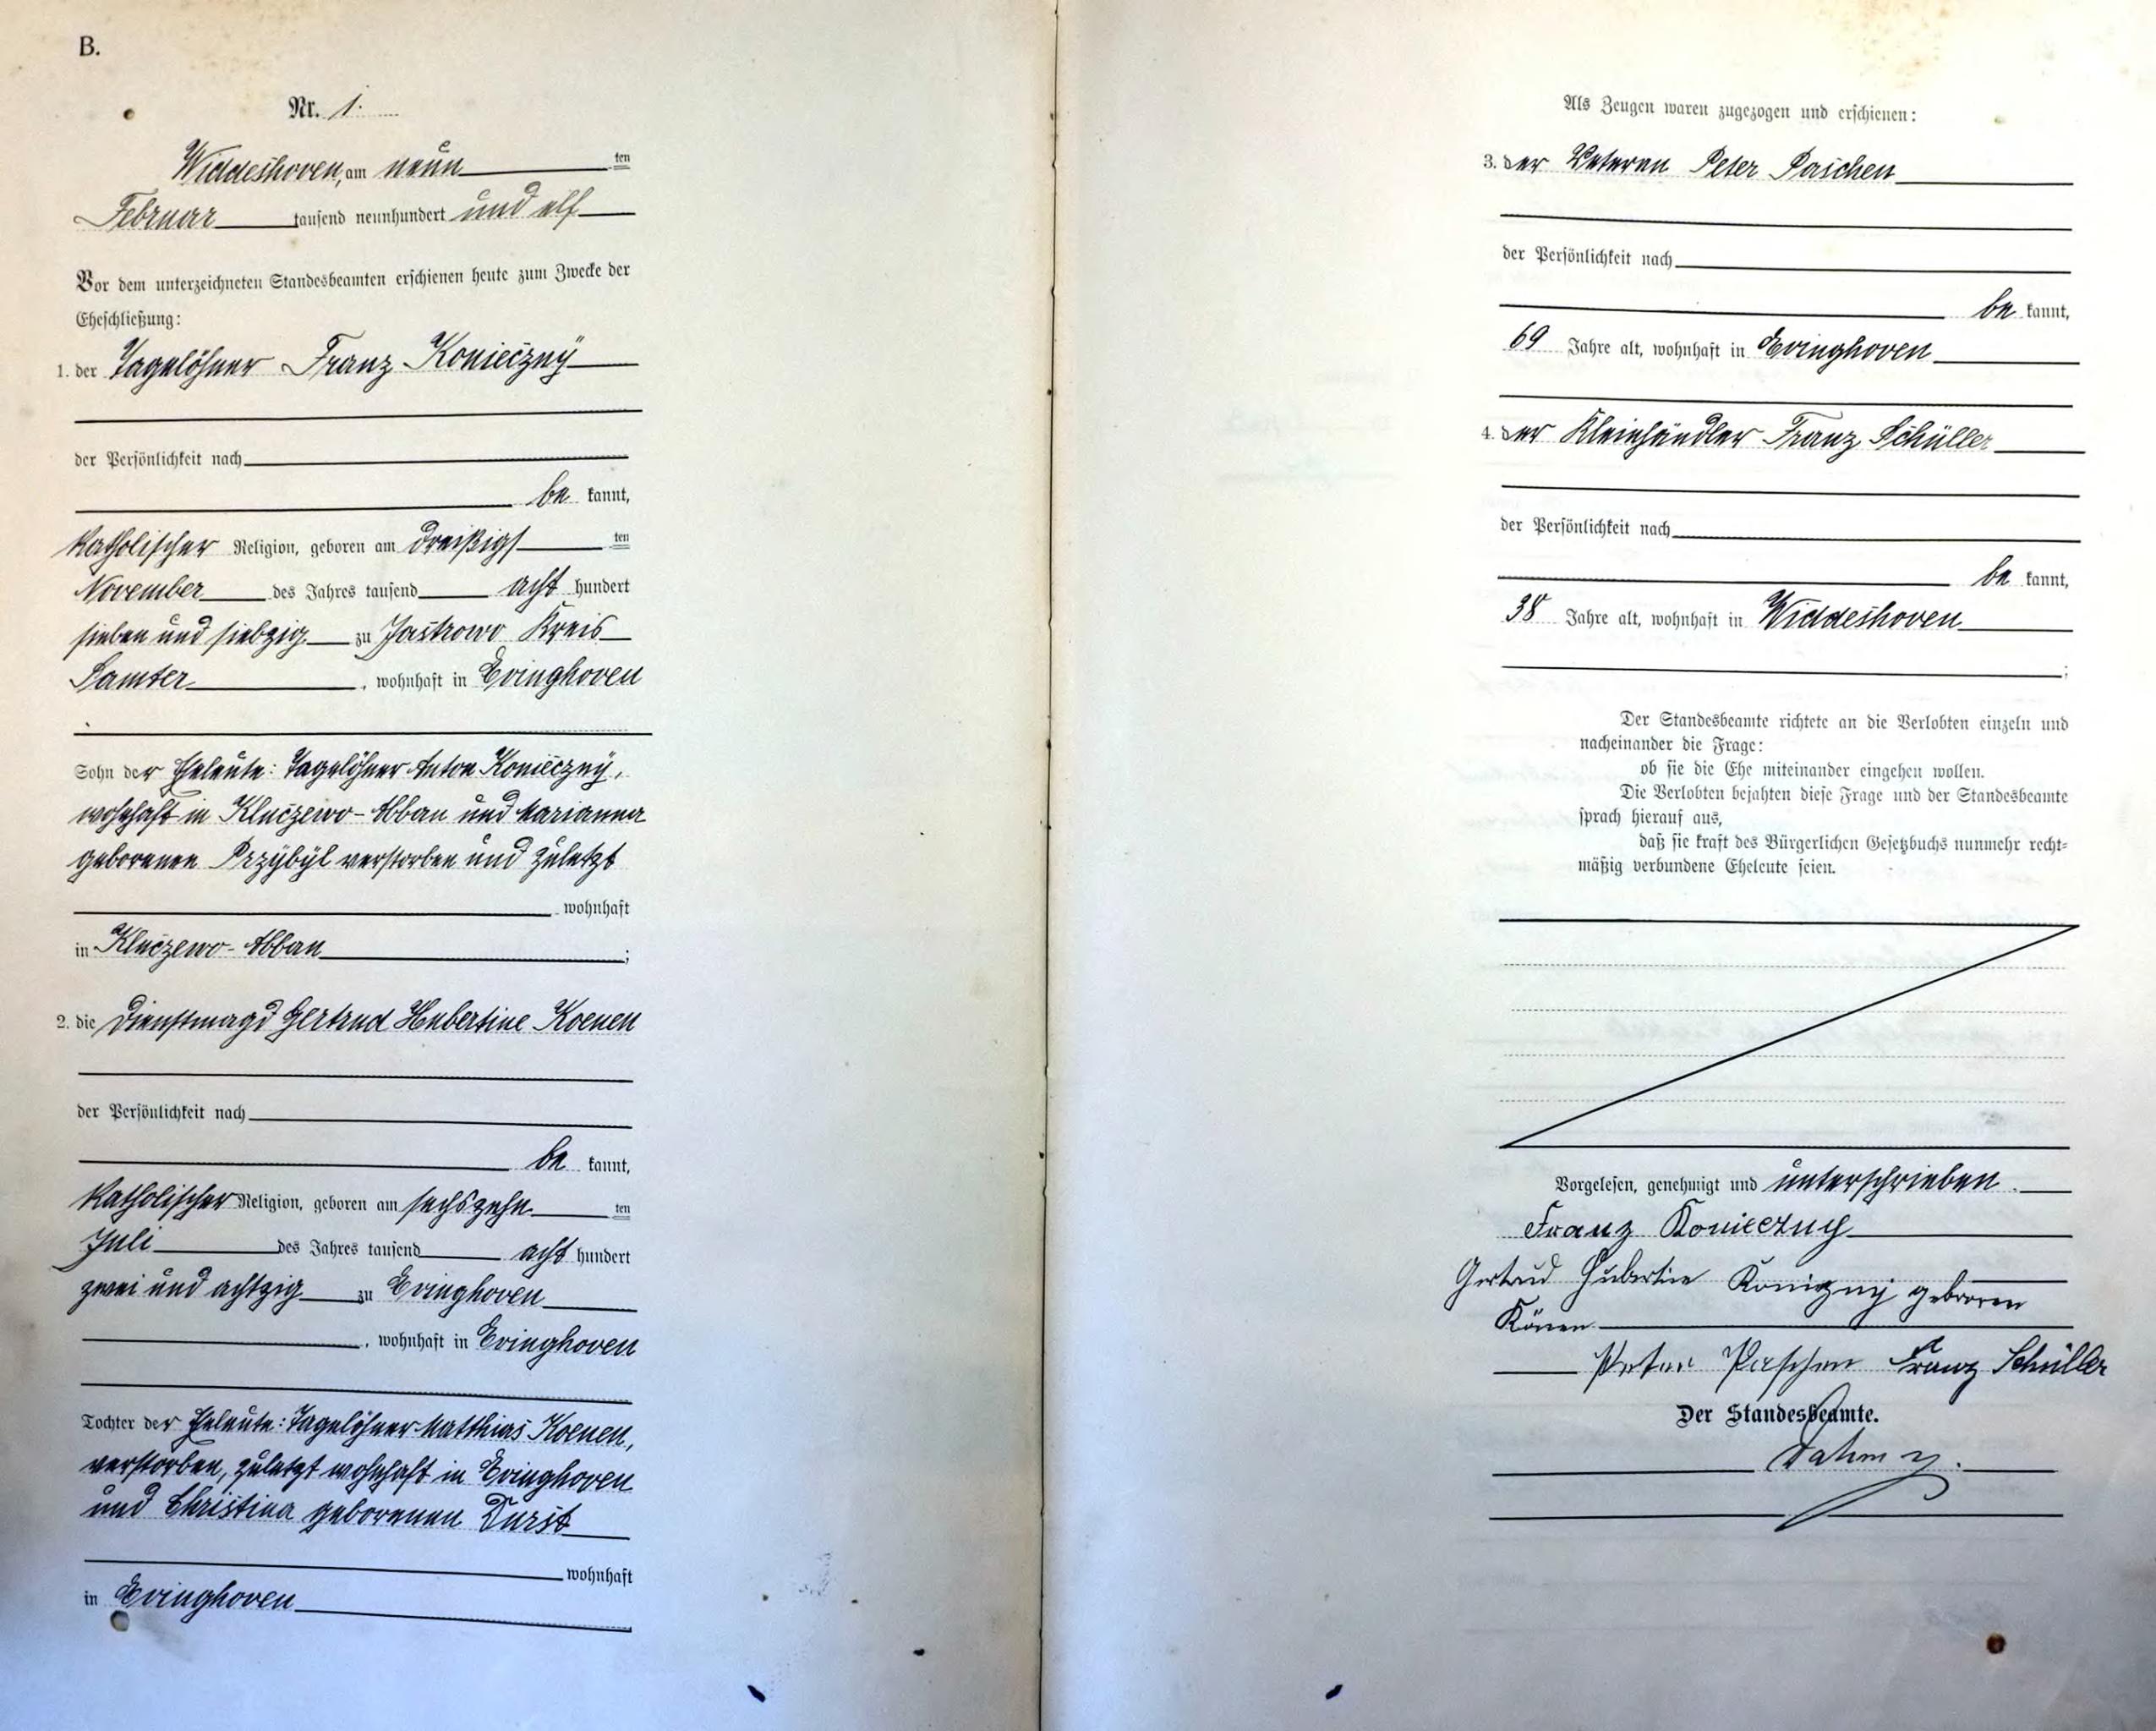 B.
Nr. 1.
Widdeshoven, am neun ten
Februar tausend neunhundert und elf
Vor dem unterzeichneten Standesbeamten erschienen heute zum Zwecke der
Eheschließung:
1. der Tagelöhner Franz Konieczny
der Persönlichkeit nach
be kannt,
katholischer Religion, geboren am dreißigs ten
November des Jahres tausend acht hundert
sieben und siebzig zu Jastrowo Kreis
Samter, wohnhaft in Evinghoven
Sohn der Eheleute: Tagelöhner Anton Konieczny,
wohnhaft in Kluczewo-Abbau und Marianna
geborenen Przybyl verstorben und zuletzt
wohnhaft
in Kluczewo-Abbau ;
2. die Dienstmagd Gertrud Hubertine Koenen
der Persönlichkeit nach
be kannt,
katholischer Religion, geboren am sechszehn ten
Juli des Jahres tausend acht hundert
zwei und achtzig zu Evinghoven
, wohnhaft in Evinghoven
Tochter der Eheleute: Tagelöhner Matthias Koenen,
verstorben, zuletzt wohnhaft in Evinghoven
und Christina geborenen Durst
wohnhaft
in Evinghoven
Als Zeugen waren zugezogen und erschienen:
3. der Veteran Peter Paschen
der Persönlichkeit nach
be kannt,
69 Jahre alt, wohnhaft in Evinghoven
4. der Kleinhändler Franz Schüller
der Persönlichkeit nach
be kannt,
38 Jahre alt, wohnhaft in Widdeshoven
;
Der Standesbeamte richtete an die Verlobten einzeln und
nacheinander die Frage:
ob sie die Ehe miteinander eingehen wollen.
Die Verlobten bejahten diese Frage und der Standesbeamte
sprach hierauf aus,
daß sie kraft des Bürgerlichen Gesetzbuchs nunmehr recht-
mäßig verbundene Eheleute seien.
Vorgelesen, genehmigt und unterschrieben.
Franz Konieczny
Gertrud Hubertine Konigzny geboren
Könen
Peter Paschen Franz Schüller
Der Standesbeamte.